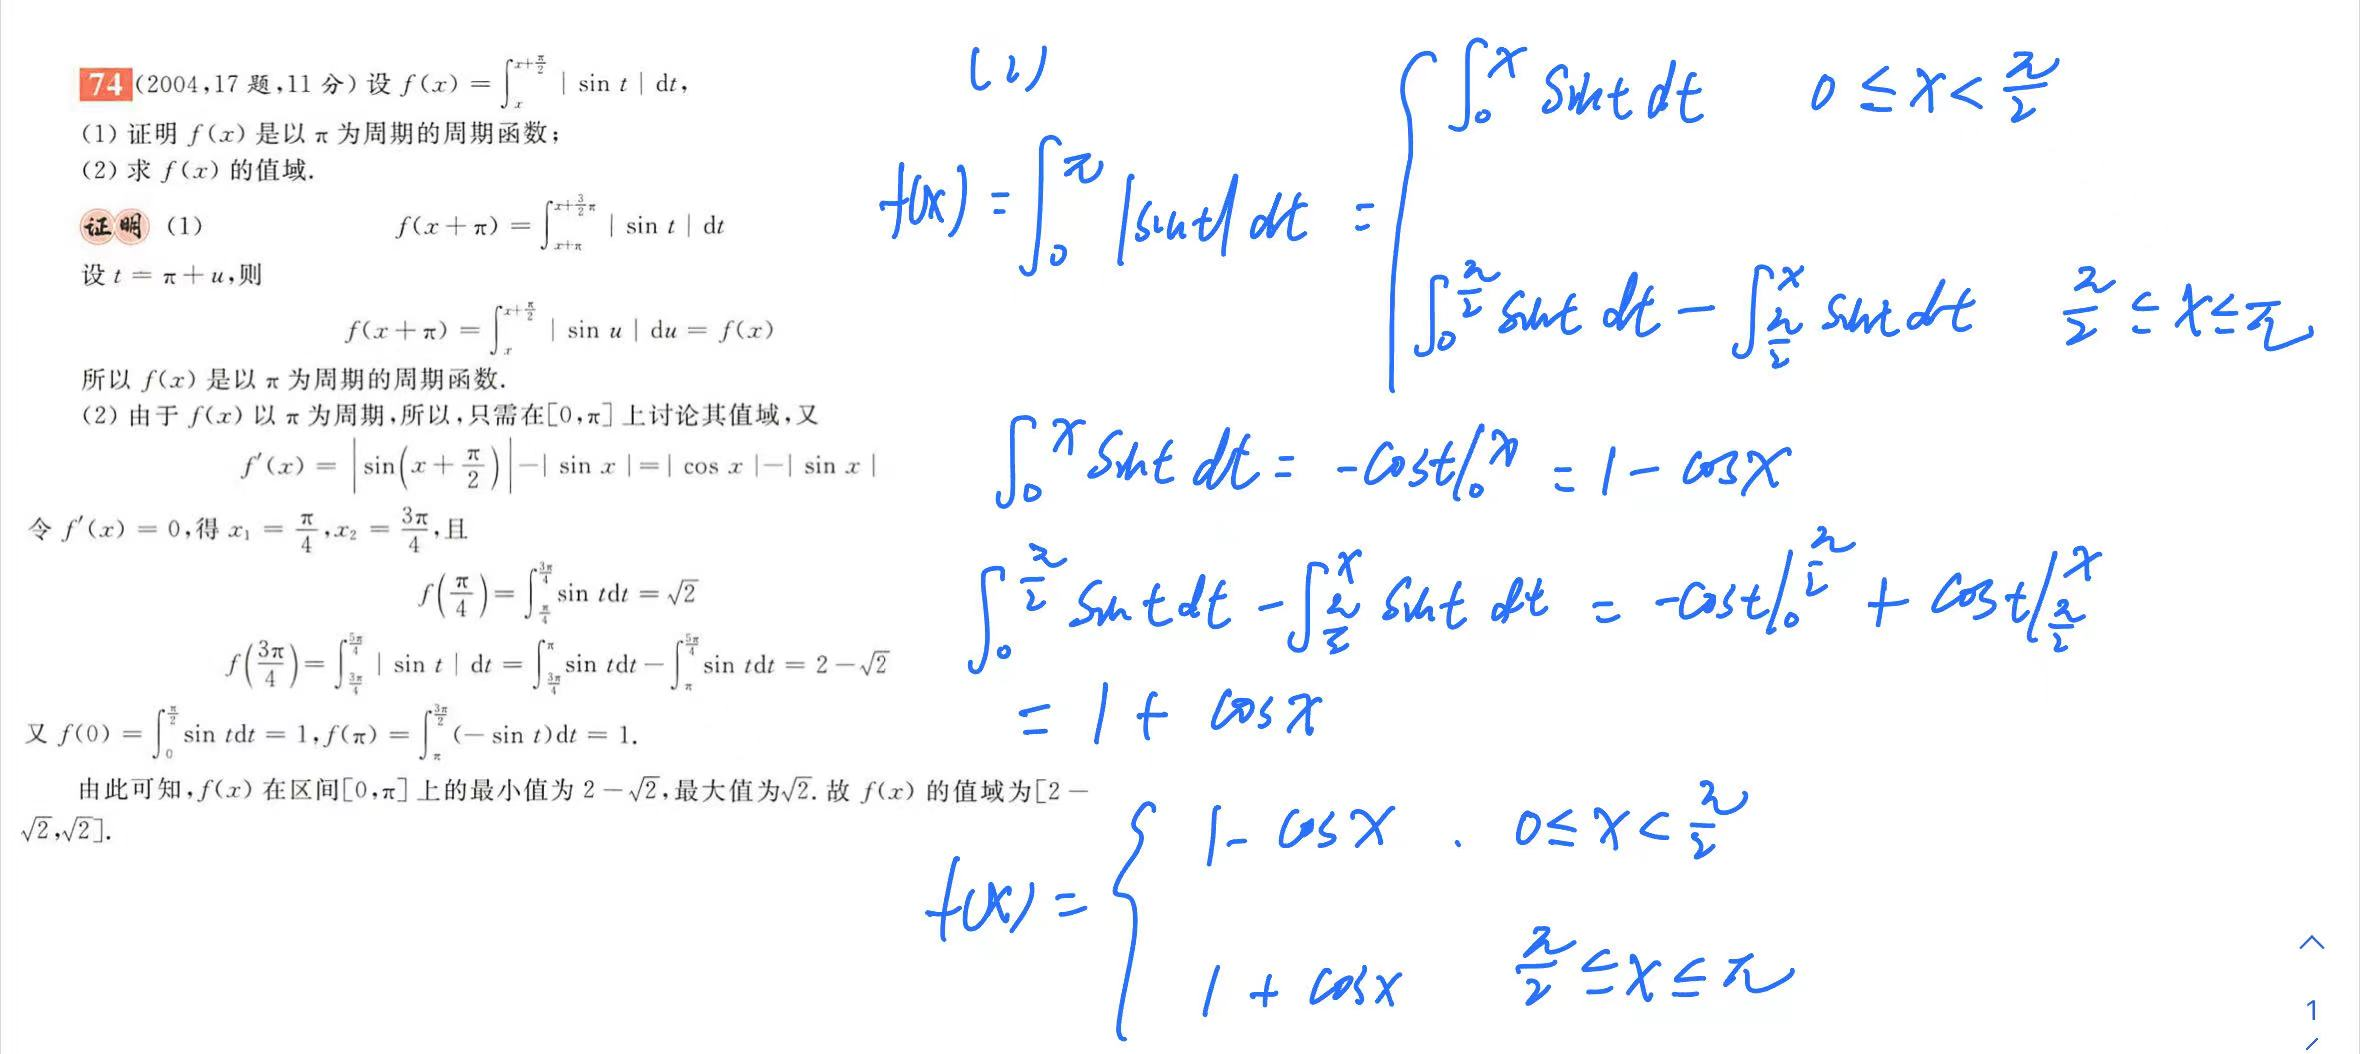 74 (2004,17 题,11 分) 设 f(x) = ∫_x^{x+π/2} | sin t | dt,
(1) 证明 f(x) 是以 π 为周期的周期函数;
(2) 求 f(x) 的值域.
证明 (1) f(x+π) = ∫_{x+π}^{x+3/2 π} | sin t | dt
设 t = π + u,则
f(x+π) = ∫_x^{x+π/2} | sin u | du = f(x)
所以 f(x) 是以 π 为周期的周期函数.
(2) 由于 f(x) 以 π 为周期,所以,只需在[0,π] 上讨论其值域,又
f′(x) = |sin(x + π/2)| − | sin x | = | cos x | − | sin x |
令 f′(x) = 0,得 x₁ = π/4, x₂ = 3π/4,且
f(π/4) = ∫_{π/4}^{3π/4} sin tdt = √2
f(3π/4) = ∫_{3π/4}^{5π/4} | sin t | dt = ∫_{3π/4}^{π} sin tdt − ∫_{π}^{5π/4} sin tdt = 2 − √2
又 f(0) = ∫_0^{π/2} sin tdt = 1, f(π) = ∫_π^{3π/2} (− sin t)dt = 1.
由此可知,f(x) 在区间[0,π] 上的最小值为 2 − √2,最大值为√2. 故 f(x) 的值域为[2 −
√2,√2].
(2)
f(x) = ∫_0^π |sint| dt = { ∫_0^x sint dt 0 ≤ x < π/2
∫_0^{π/2} sint dt − ∫_{π/2}^x sint dt π/2 ≤ x ≤ π
∫_0^x sint dt = -cost|_0^x = 1 − cosx
∫_0^{π/2} sint dt − ∫_{π/2}^x sint dt = -cost|_0^{π/2} + cost|_{π/2}^x
= 1 + cosx
f(x) = { 1 - cosx . 0 ≤ x < π/2
1 + cosx π/2 ≤ x ≤ π
1
/